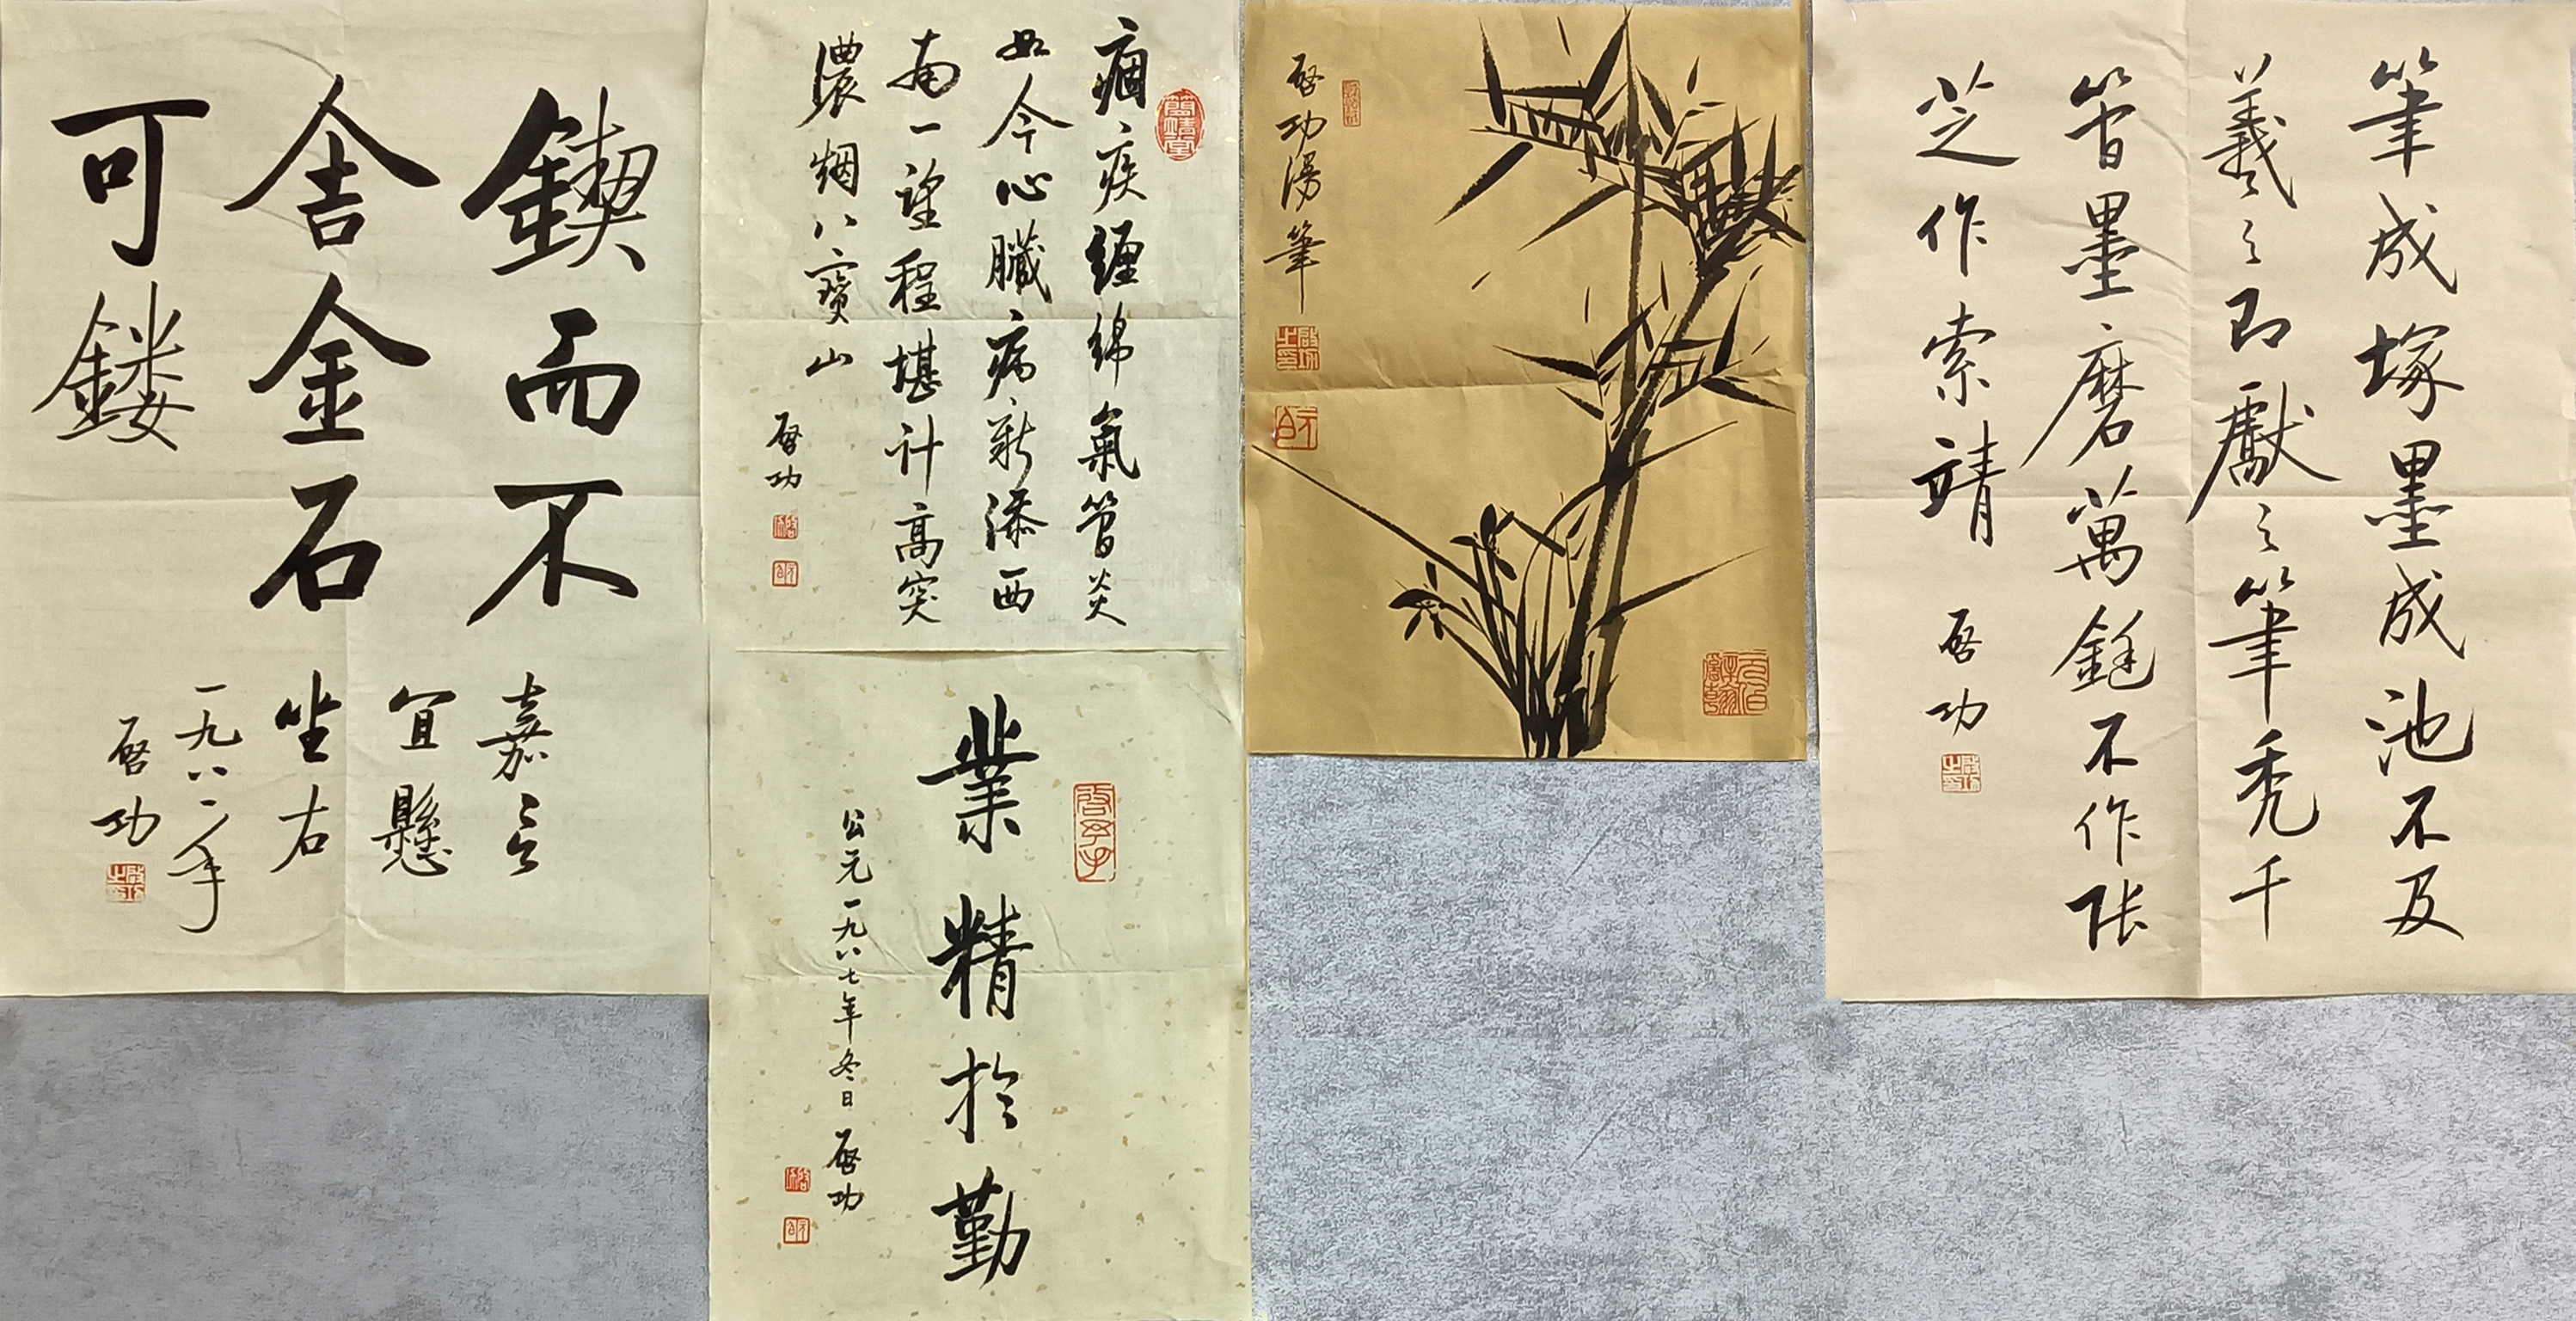 鍥而不
舍金石
可鏤
嘉言
宜懸
坐右
一九八一年
啓功
痼疾纏綿氣管炎
如今心臟病新添西
南一望程堪計高突
濃烟八寶山
啓功
業精於勤
公元一九八七年冬日
啓功
啓功漫筆
筆成塚墨成池不及
羲之即獻之筆禿千
管墨磨萬鋌不作張
芝作索靖
啓功